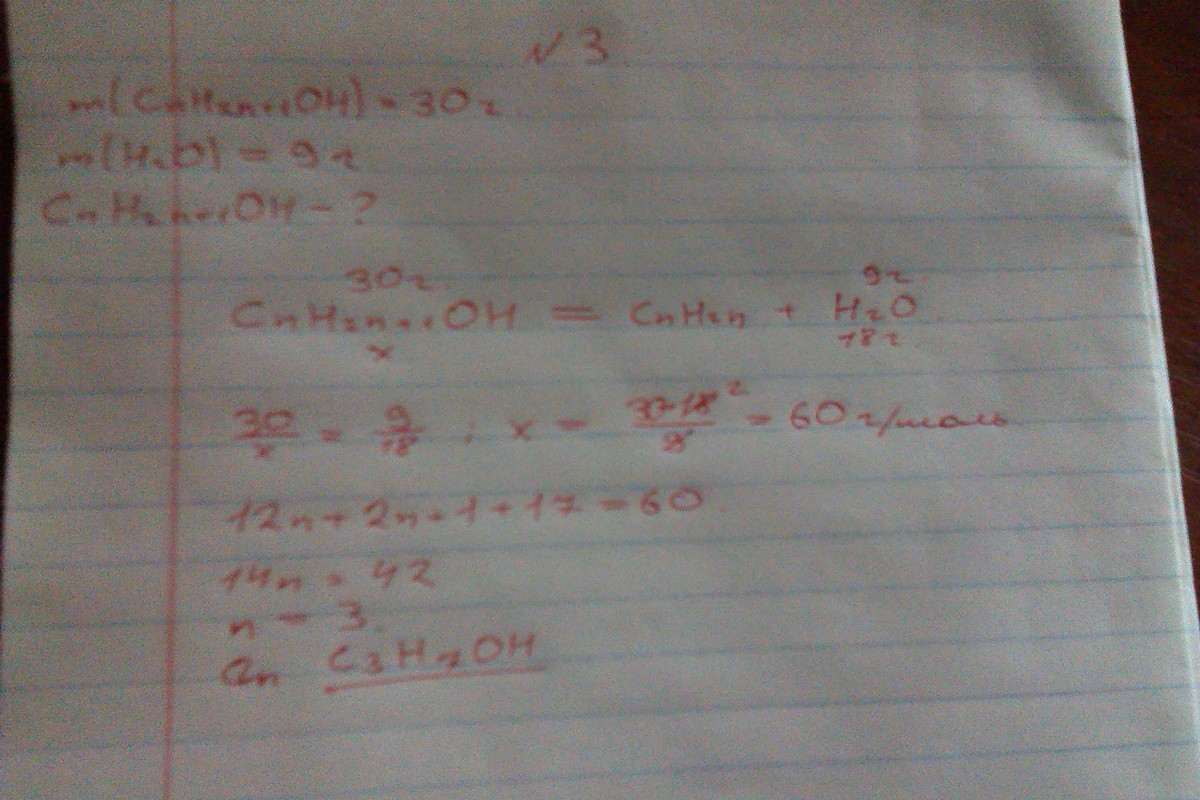 № 3.
m(CnH2n+1OH) = 30 г.
m(H2O) = 9 г
CnH2n+1OH - ?
30 г. 9 г.
CnH2n+1OH = CnH2n + H2O.
x 18 г.
30/x = 9/18 ; x = 30·18/9 2 = 60 г/моль
12n + 2n + 1 + 17 = 60
14n = 42
n = 3.
C3H7OH